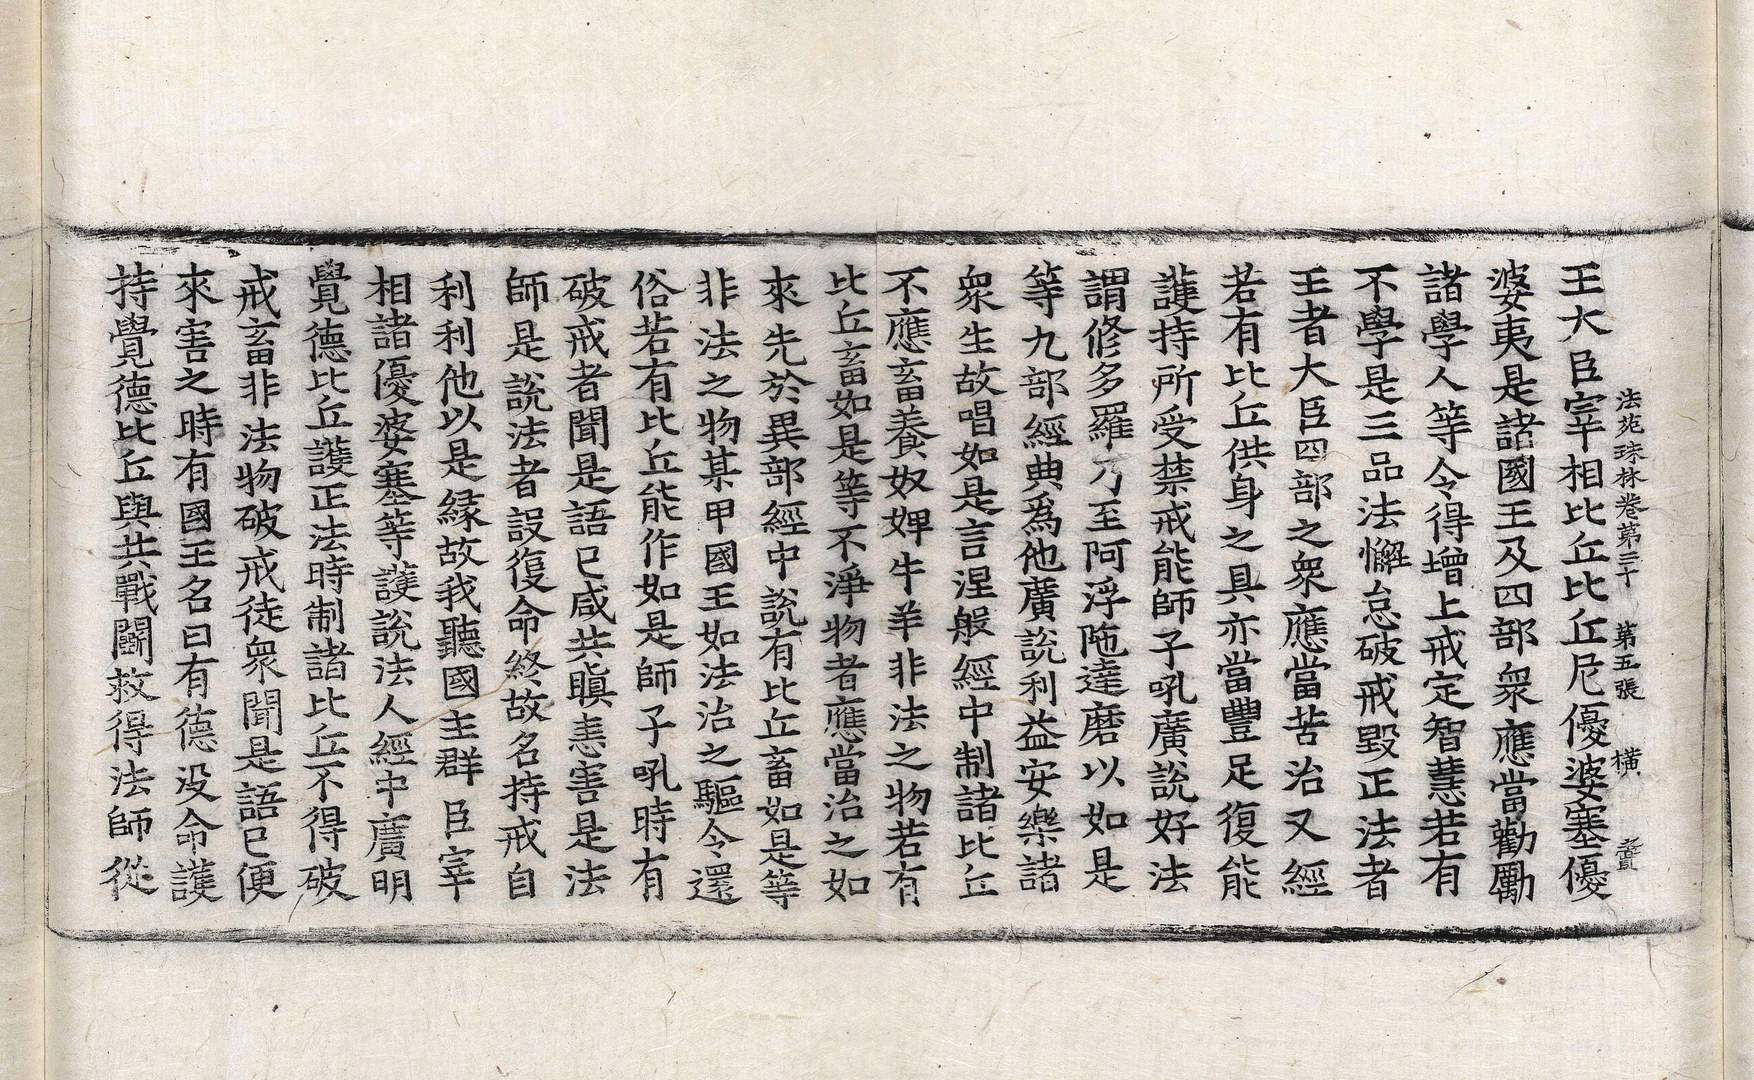 法苑珠林卷第三十　第五張　橫
王大臣宰相比丘比丘尼優婆塞優
婆夷是諸國王及四部衆應當勸勵
諸學人等令得增上戒定智慧若有
不學是三品法懈怠破戒毀正法者
王者大臣四部之衆應當苦治又經
若有比丘供身之具亦當豐足復能
護持所受禁戒能師子吼廣說好法
謂修多羅乃至阿浮陁達磨以如是
等九部經典爲他廣說利益安樂諸
衆生故唱如是言涅槃經中制諸比丘
不應畜養奴婢牛羊非法之物若有
比丘畜如是等不淨物者應當治之如
來先於異部經中說有比丘畜如是等
非法之物某甲國王如法治之驅令還
俗若有比丘能作如是師子吼時有
破戒者聞是語已咸共瞋恚害是法
師是說法者設復命終故名持戒自
利利他以是緣故我聽國主群臣宰
相諸優婆塞等護說法人經中廣明
覺德比丘護正法時制諸比丘不得破
戒畜非法物破戒徒衆聞是語已便
來害之時有國王名曰有德没命護
持覺德比丘與共戰鬭救得法師從